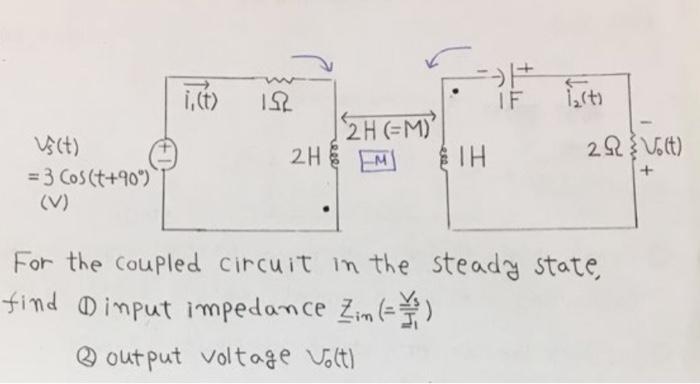 i₁(t) 1Ω
- +
1F i₂(t)
2H (=M)
-M
2H 1H
Vs(t)
= 3 Cos(t+90°)
(V)
+
-
2Ω V₀(t)
-
+
For the coupled circuit in the steady state,
find ① input impedance Zin (= Vs/I₁)
② output voltage V₀(t)